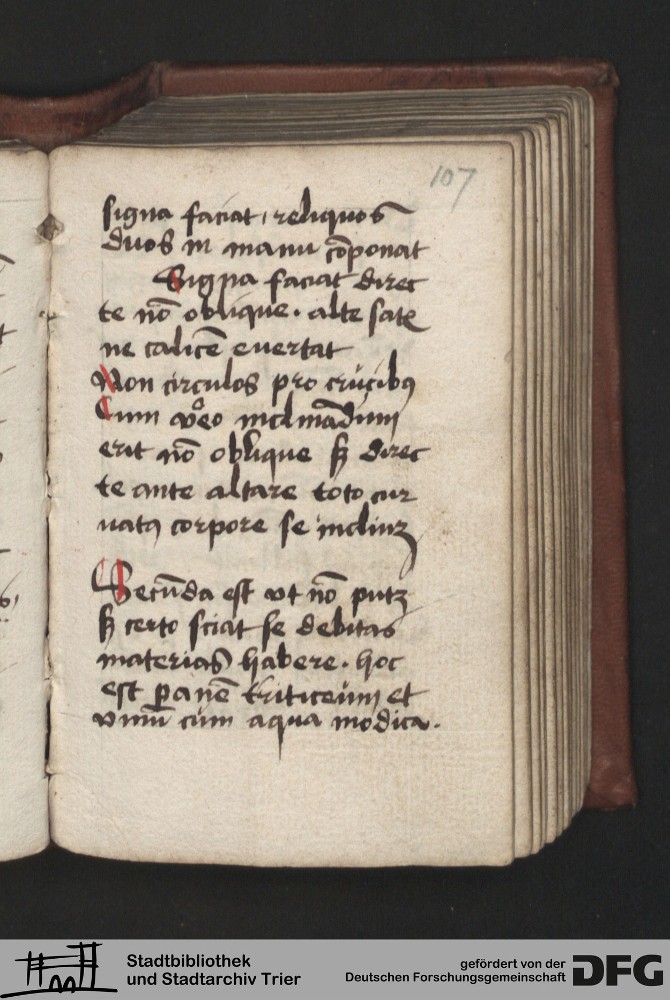 107
signa faciat, reliquos
duos in manu cōponat
Signa faciat direc
te nō oblique. alte
ne calicē evertat
Non circulos pro crucibꝰ
Cum inclinādum
erit nō oblique sꝫ direc
te ante altare toto cur
uatꝰ corpore se inclinꝫ
Secūda est vt nō putꝫ
sꝫ certo sciat se debitas
materias habere. hoc
est panē triticeum et
vinū cum aqua modica.
Stadtbibliothek
und Stadtarchiv Trier
gefördert von der
Deutschen Forschungsgemeinschaft
DFG